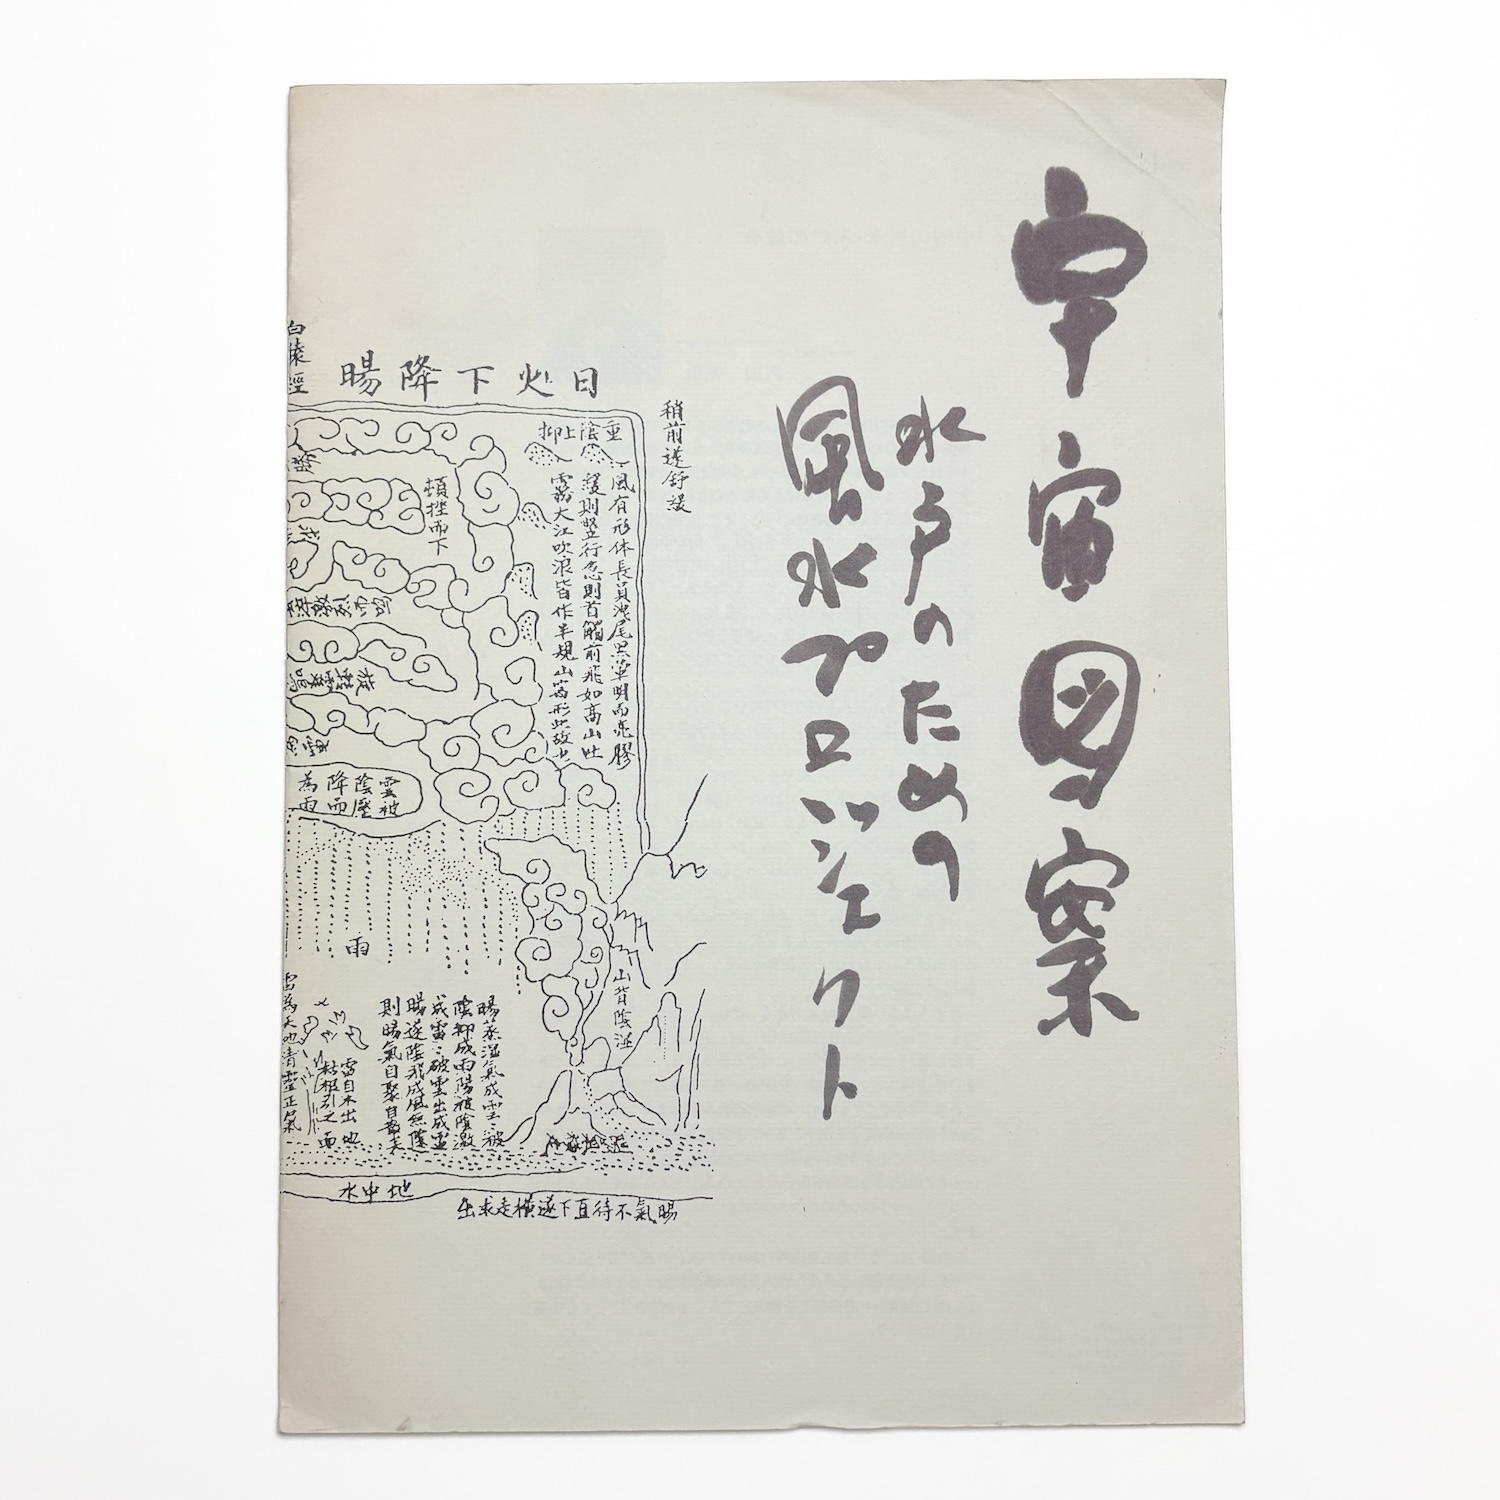 宇宙図案
水戸のための
風水プロジェクト
白猿経
日火下降暘
稍前遂舒緩
重陰上抑
風有形体長員洩尾黒草明而亮膠
緩則竪行忽則首觸前飛如高山吐
霧大江吹浪皆作半規山嵩形此故也
頓挫而下
雲被
陰壓
降而
為雨
雨
山背陰湿
暘蒸湿氣成雲被
陰抑成雨陽被陰激
成雷破雲出成霊
暘遂陰飛成風無陰
則暘氣自聚自
雷自木出地
枯根引之
雷為天地清霊正氣
地中水
暘氣不待直下遂横走求出